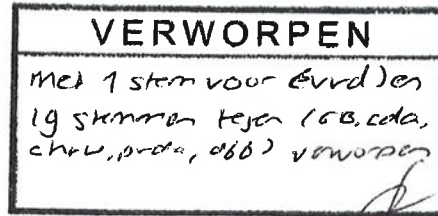 VERWORPEN
met 1 stem voor (vvd) en
19 stemmen tegen (GB, cda,
chru, pvda, d66) verworpen